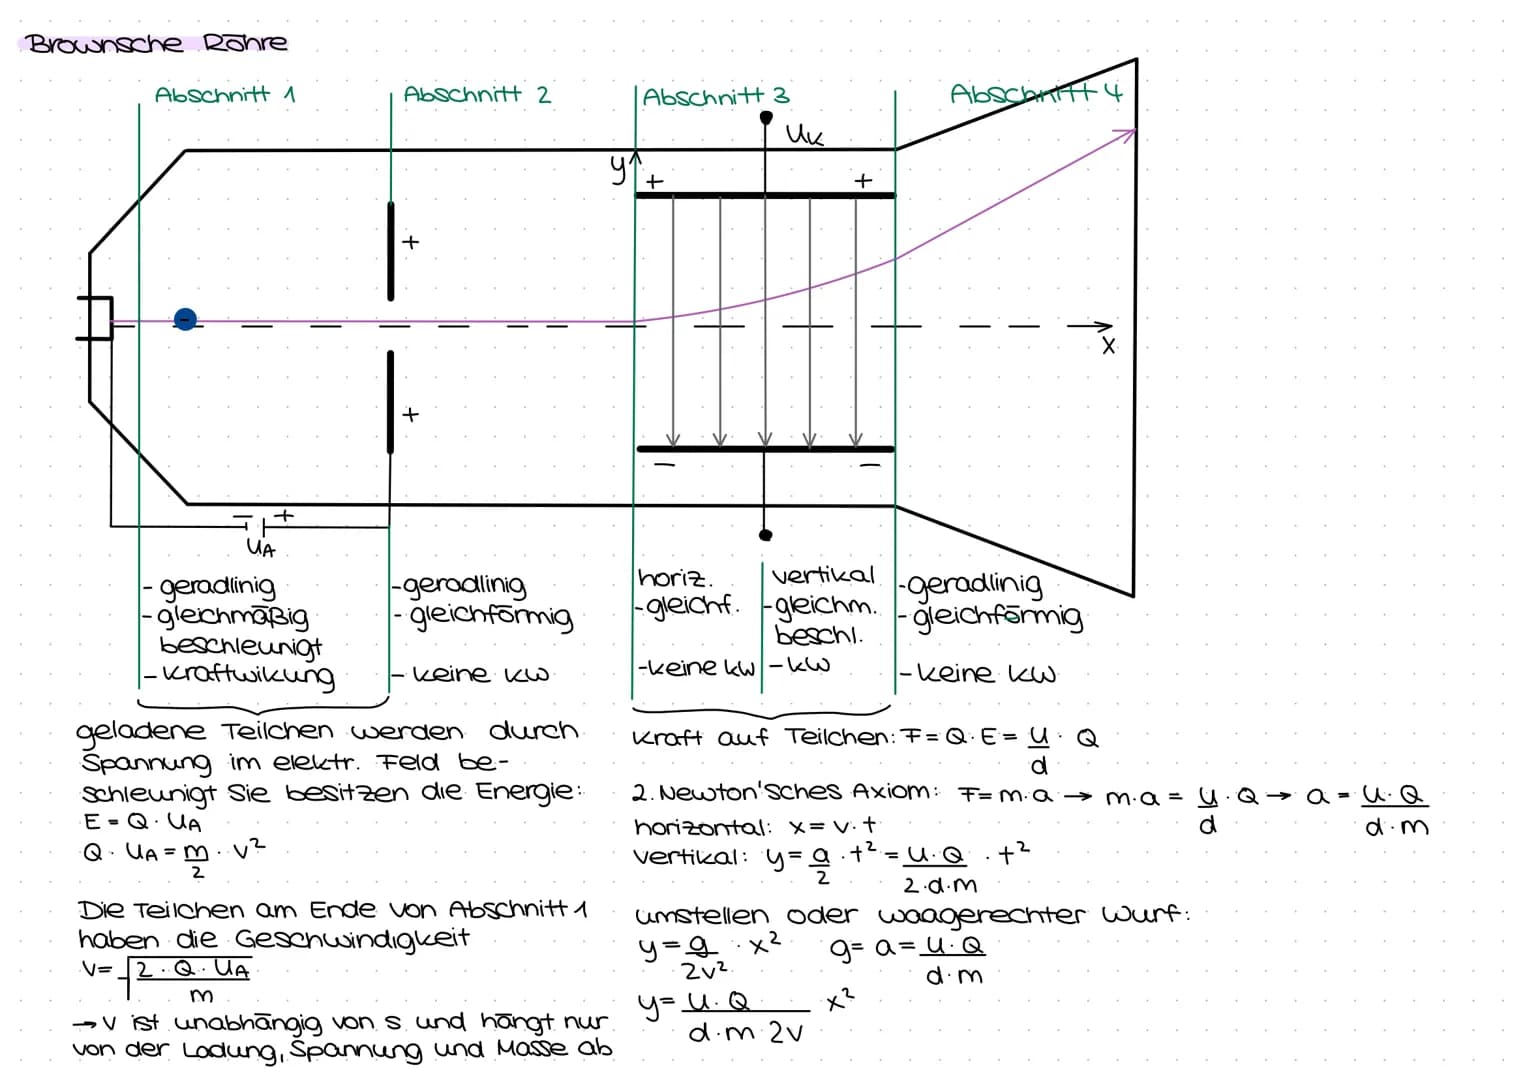 Brownsche Röhre
Abschnitt 1
Abschnitt 2
Abschnitt 3
Abschnitt 4
UK
y
+ +
+
-
x
+
- -
- +
UA
- geradlinig
- gleichmäßig
beschleunigt
- kraftwikung
- geradlinig
- gleichförmig
- keine kw
horiz.
- gleichf.
- keine kw
vertikal
- gleichm.
beschl.
- kw
- geradlinig
- gleichförmig
- keine kw
geladene Teilchen werden durch
Spannung im elektr. Feld be-
schleunigt Sie besitzen die Energie:
E = Q · UA
Q · UA = m/2 · v²
Die Teilchen am Ende von Abschnitt 1
haben die Geschwindigkeit
v = √(2 · Q · UA / m)
→ v ist unabhängig von s und hängt nur
von der Ladung, Spannung und Masse ab
Kraft auf Teilchen: F = Q · E = U/d · Q
2. Newton'sches Axiom: F = m · a → m · a = U/d · Q → a = U · Q / d · m
horizontal: x = v · t
vertikal: y = a/2 · t² = U · Q / 2 · d · m · t²
umstellen oder waagerechter Wurf:
y = g/2v² · x² g = a = U · Q / d · m
y = U · Q / d · m 2v x²